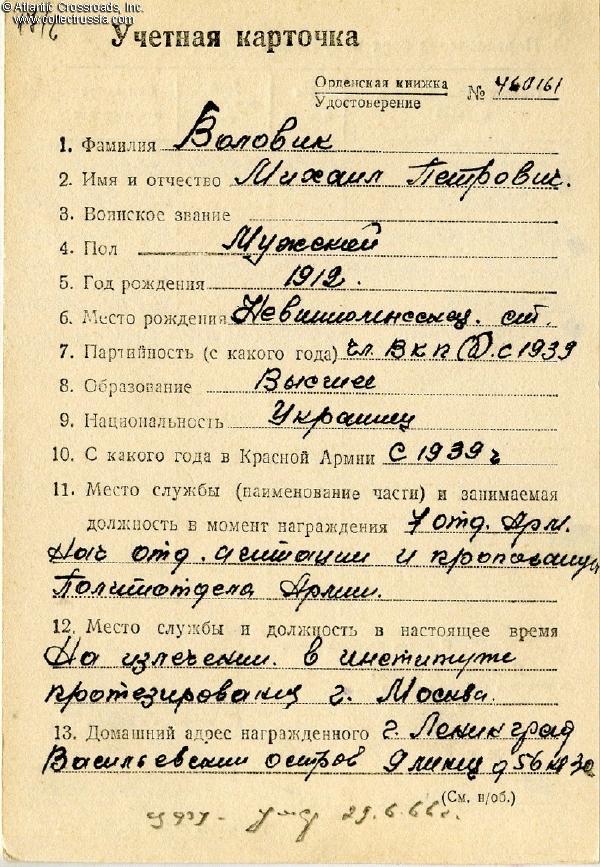 © Atlantic Crossroads, Inc.
www.collectrussia.com
Учетная карточка
Орденская книжка
Удостоверение № 460161
1. Фамилия Воловик
2. Имя и отчество Михаил Петрович.
3. Воинское звание
4. Пол Мужской
5. Год рождения 1912.
6. Место рождения ст.
7. Партийность (с какого года) чл. ВКП(б). с 1939
8. Образование Высшее
9. Национальность Украинец
10. С какого года в Красной Армии с 1939 г
11. Место службы (наименование части) и занимаемая
должность в момент награждения 7 отд. Арм.
Нач отд. агитации и пропаганды
Политотдела Армии.
12. Место службы и должность в настоящее время
На излечении. в институте
протезирования г. Москва.
13. Домашний адрес награжденного г. Ленинград
Васильевский остров 9 линия д 56 кв 30
(См. н/об.)
29.6.66г.